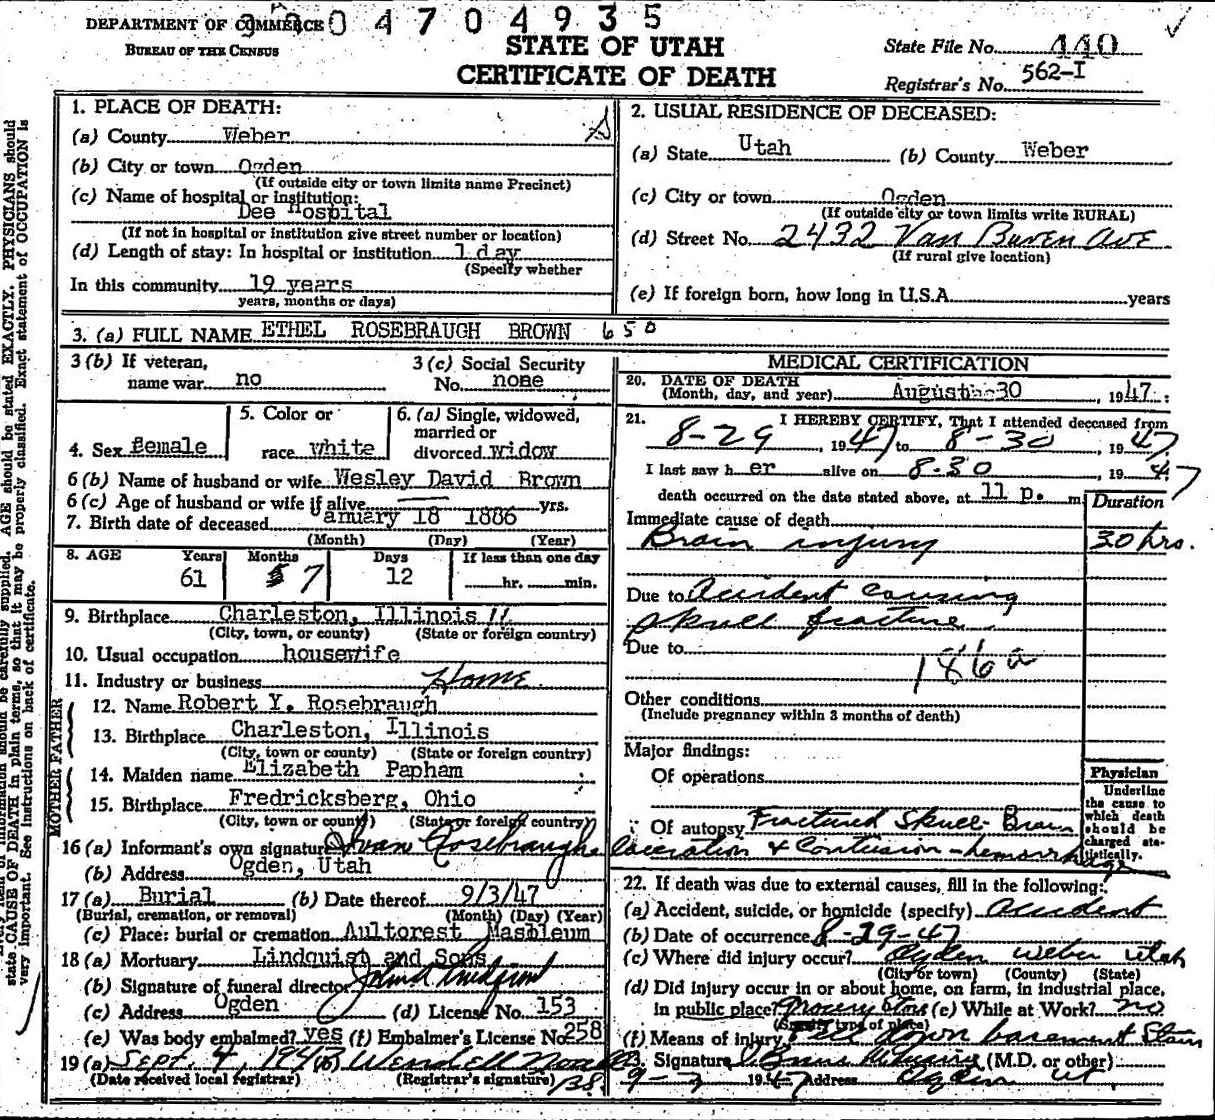 DEPARTMENT OF COMMERCE
BUREAU OF THE CENSUS
04704935
STATE OF UTAH
CERTIFICATE OF DEATH
State File No. 440
Registrar's No. 562-I
1. PLACE OF DEATH:
(a) County Weber
(b) City or town Ogden
(If outside city or town limits name Precinct)
(c) Name of hospital or institution:
Dee Hospital
(If not in hospital or institution give street number or location)
(d) Length of stay: In hospital or institution 1 day
(Specify whether
In this community 19 years
years, months or days)
2. USUAL RESIDENCE OF DECEASED:
(a) State Utah (b) County Weber
(c) City or town Ogden
(If outside city or town limits write RURAL)
(d) Street No. 2432 Van Buren Ave
(If rural give location)
(e) If foreign born, how long in U.S.A. years
3. (a) FULL NAME ETHEL ROSEBRAUGH BROWN 650
3 (b) If veteran, name war no
3 (c) Social Security No. none
4. Sex female
5. Color or race white
6. (a) Single, widowed, married or divorced widow
6 (b) Name of husband or wife Wesley David Brown
6 (c) Age of husband or wife if alive yrs.
7. Birth date of deceased anuary 18 1886
(Month) (Day) (Year)
8. AGE Years Months Days If less than one day
61 7 12 hr. min.
9. Birthplace Charleston, Illinois !!
(City, town, or county) (State or foreign country)
10. Usual occupation housewife
11. Industry or business Home
FATHER
12. Name Robert Y. Rosebraugh
13. Birthplace Charleston, Illinois
(City, town or county) (State or foreign country)
MOTHER
14. Maiden name Elizabeth Papham
15. Birthplace Fredricksberg, Ohio
(City, town or county) (State or foreign country)
16 (a) Informant's own signature Rosebraugh
(b) Address Ogden, Utah
17 (a) Burial (b) Date thereof 9/3/47
(Burial, cremation, or removal) (Month) (Day) (Year)
(c) Place: burial or cremation Aultorest Masoleum
18 (a) Mortuary Lindquist and Sons
(b) Signature of funeral director
(c) Address Ogden (d) License No. 153
(e) Was body embalmed? yes (f) Embalmer's License No. 258
19 (a) Sept. 4, 194 (b) Wendell
(Date received local registrar) (Registrar's signature)
MEDICAL CERTIFICATION
20. DATE OF DEATH
(Month, day, and year) August 30, 1947
21. I HEREBY CERTIFY, That I attended deceased from
8-29, 1947 to 8-30, 1947
I last saw her alive on 8-30 1947
death occurred on the date stated above, at 11 p. m
Duration
Immediate cause of death
Brain injury 30 hrs.
Due to Accident causing
skull fracture
Due to
186a
Other conditions
(Include pregnancy within 3 months of death)
Major findings:
Of operations
Of autopsy Fractured Skull - Brain
laceration & Contusion - hemorrhage
Physician
Underline the cause to which death should be charged statistically.
22. If death was due to external causes, fill in the following:
(a) Accident, suicide, or homicide (specify) accident
(b) Date of occurrence 8-29-47
(c) Where did injury occur? Ogden Weber Utah
(City or town) (County) (State)
(d) Did injury occur in or about home, on farm, in industrial place, in public place? Grocery Store (e) While at Work? no
(Specify type of place)
(f) Means of injury Fell down basement Stairs
Signature (M.D. or other)
9- 1947 Address Ogden Ut.
AGE should be stated EXACTLY. PHYSICIANS should
state CAUSE OF DEATH in plain terms, so that it may be properly classified. Exact statement of OCCUPATION is
very important. See instructions on back of certificate.